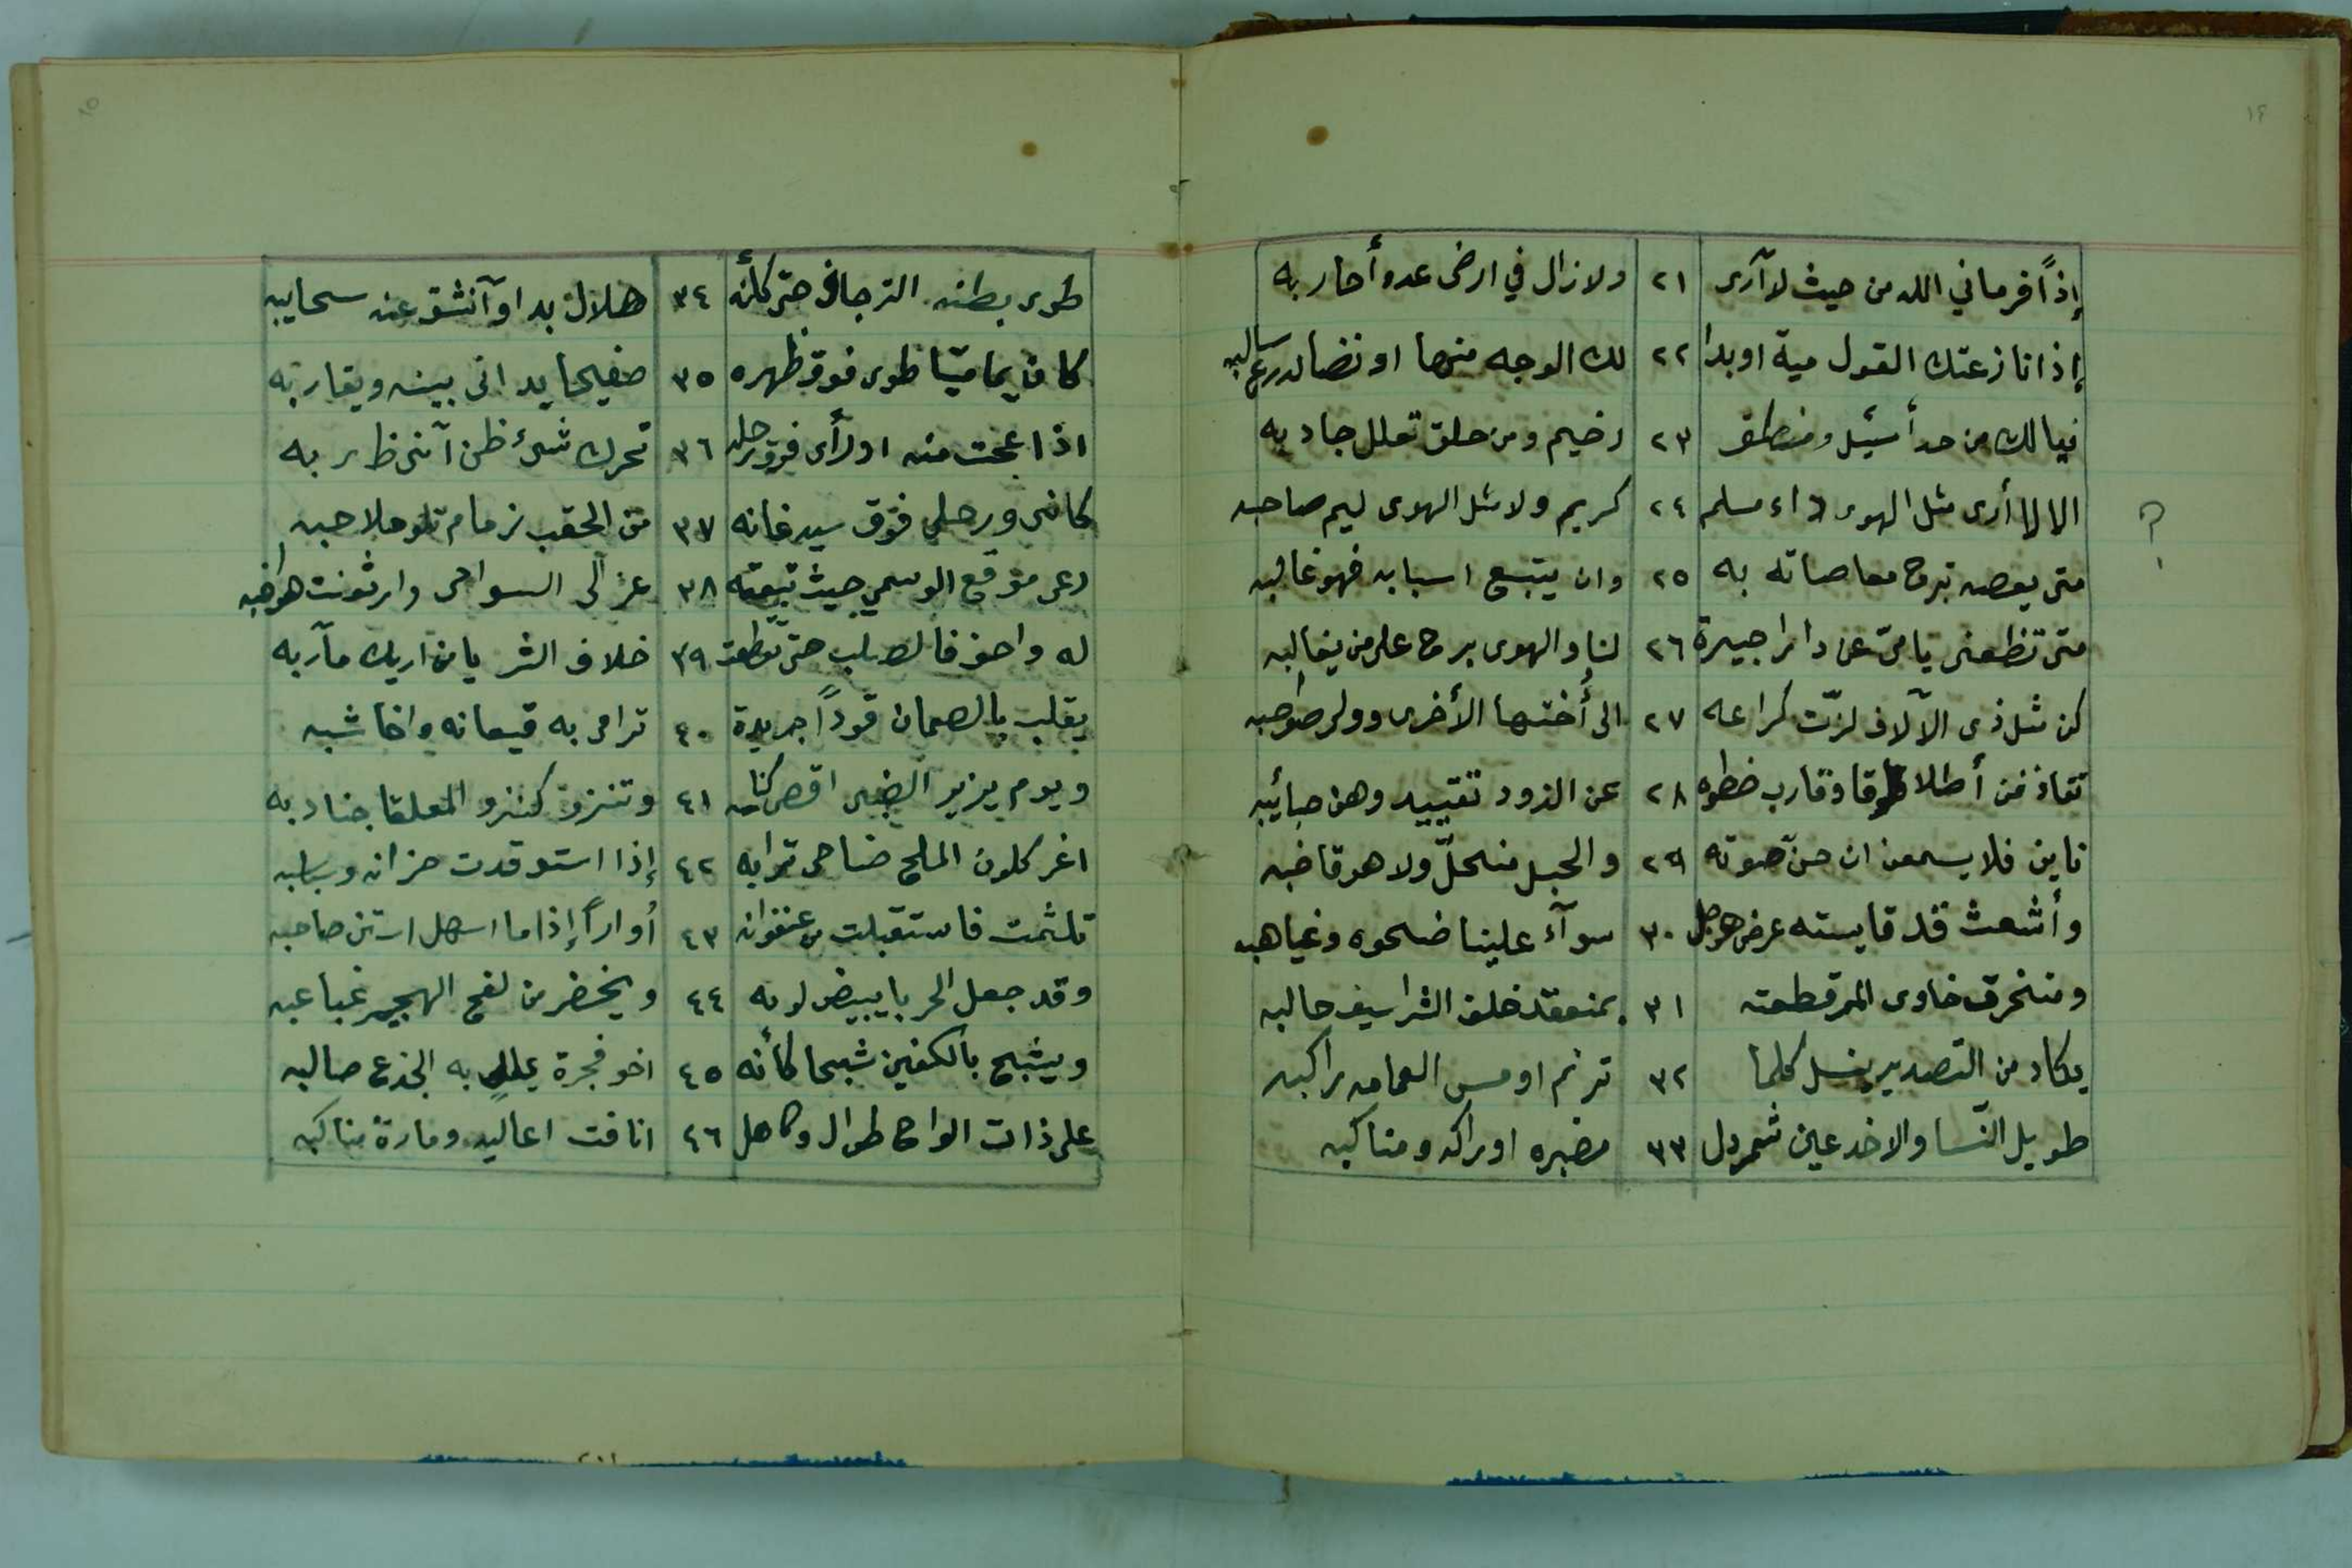 ١٤
إذاً فرماني الله من حيث لا آرى ٢١ ولا زال في ارضى عدو أحاربه
إذا نازعتك القول مية او بدا ٢٢ لك الوجه منها او نضا الدرع سالبه
فيا لك من خد أسيل ومنطق ٢٣ رخيم ومن خلق تعلل جادبه
الا لا أرى مثل الهوى داء مسلم ٢٤ كريم ولا مثل الهوى ليم صاحبه
متى يعصه تبرح معاصاته به ٢٥ وان يتبع اسبابه فهو غالبه
متى تظعنى يا مىّ عن دار جيرة ٢٦ لنا والهوى برح على من يغالبه
كن مثل ذى الآلاف لزّت كراعه ٢٧ الى أختها الأخرى وولى صواحبه
تقاذفن أطلاقا وقارب خطوه ٢٨ عن الذود تقييد وهن حبائبه
ناين فلا يسمعن ان حنّ صوته ٢٩ والحبل منحلّ ولا هو قاضبه
وأشعث قد قايسته عرض هوجل ٣٠ سوآء علينا ضحوه وغياهبه
ومنخرق خاوى الممر قطعته ٣١ بمنعقد خلف الشراسيف حالبه
يكاد من التصدير ينسل كلما ٣٢ ترنم او مس العمامه راكبه
طويل النّسا والاخدعين شمردل ٣٣ مضبره اوراكه ومناكبه
؟
١٥
طوى بطنه الترجاف حتى كأنه ٣٤ هلال بدا وآنشق عنه سحايبه
كان يماميّا طوى فوق ظهره ٣٥ صفيحا يدانى بينه ويقاربه
اذا عجت منه اورأى فوق رحله ٣٦ تحرك شىء ظن آنى ظاربه
كانى ورحلى فوق سيد عانه ٣٧ من الحقب زمام تلوح ملاحبه
رعى موقع الوسمي حيث تبعقت ٣٨ عزالى السواحى وارثعنت هواضبه
له واحف فالصلب حتى تقطعت ٣٩ خلاف الثريا من اريك مآربه
يقلب بالصمان قوداً جريدة ٤٠ ترامى به قيعانه واخاشبه
ويوم يزير الظبى اقصى كناسه ٤١ وتنزو كنزو المعلقا جنادبه
اغر كلون الملح ضاحى ترابه ٤٢ إذا استوقدت حزانه وسباسبه
تلثمت فاستقبلت من عنفوانه ٤٣ أواراً إذا ما اسهل استن حاصبه
وقد جعل الحربا يبيض لونه ٤٤ ويخضر من لفح الهجير غباغبه
ويشبح بالكفين شبحا كأنه ٤٥ اخو فجرة عالى به الجذع صالبه
على ذات الواح طوال وكاهل ٤٦ انافت اعاليه ومارة مناكبه